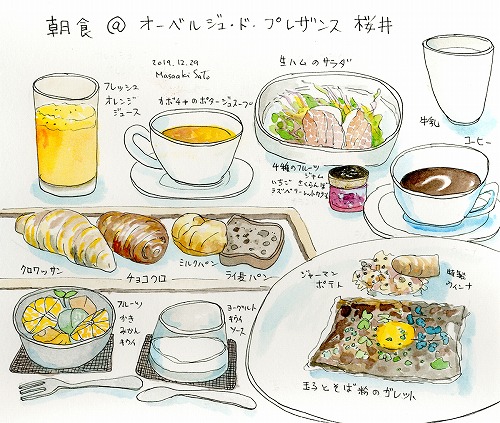 朝食 @ オーベルジュ・ド・プレザンス 桜井
2019.12.29
Masaaki Sato
フレッシュ
オレンジ
ジュース
カボチャのポタージュスープ
生ハムのサラダ
牛乳
コーヒー
4種のフルーツ
ジャム
いちご さくらんぼ
クロワッサン
チョコクロ
ミルクパン
ライ麦パン
フルーツ
かき
みかん
キウイ
ヨーグルト
キウイ
ソース
ジャーマン
ポテト
特製
ウインナ
玉子とそば粉のガレット